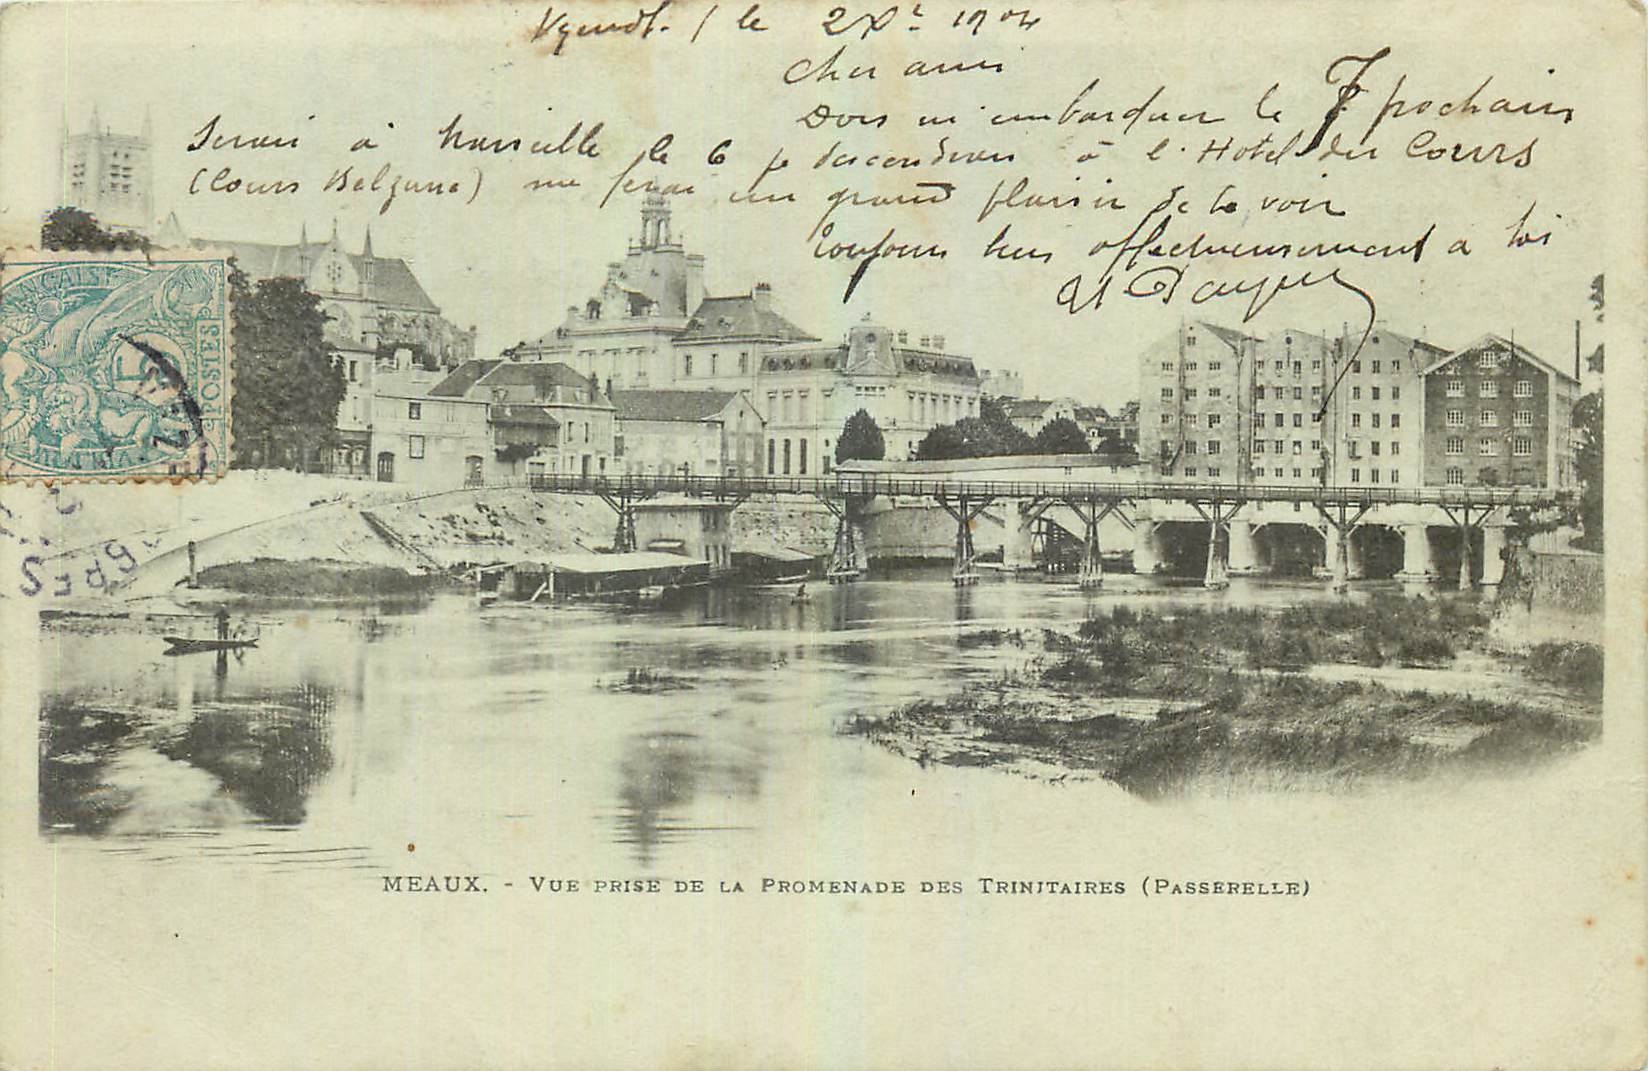 le 2 Xbre 1904
Cher ami
Dois m'embarquer le 7 prochain
Serai à Marseille le 6 je descendrai à l'Hotel des Cours
(Cours Belzunce) me ferai un grand plaisir de te voir
Toujours bien affectueusement à toi
FRANÇAISE
5
POSTES
MEAUX. - VUE PRISE DE LA PROMENADE DES TRINITAIRES (PASSERELLE)